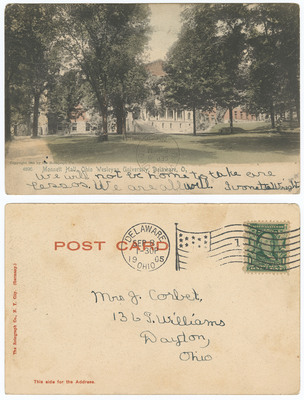 Monnett Hall, Ohio Wesleyan University, Delaware, O.
We will not be home to take
lessons. We are all well.
POST CARD
DELAWARE
SEP 2
1905
OHIO
Mrs J. Corbet,
136 S. Williams
Dayton,
Ohio
The Rotograph Co., N. Y. City (Germany.)
This side for the Address.